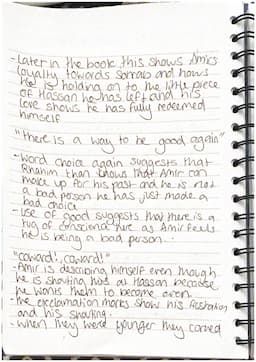 - Later in the book this shows Amirs
loyalty towards Sohrab and hows
he is holding on to the little piece
of Hassan he has left and his
love shows he has fully redeemed
himself
"there is a way to be good again"
- Word choice again suggests that
Rhahim Khan knows that Amir can
make up for his past and he is not
a bad person he has just made a
bad choice
- Use of good suggests that there is a
tug of conscience here as Amir feels
he is being a bad person.
"coward!, coward!"
- Amir is describing himself even though
he is shouting this at Hassan because
he wants them to become even
- the exclamation marks show his frustration
and his shouting.
- when they were younger they carved